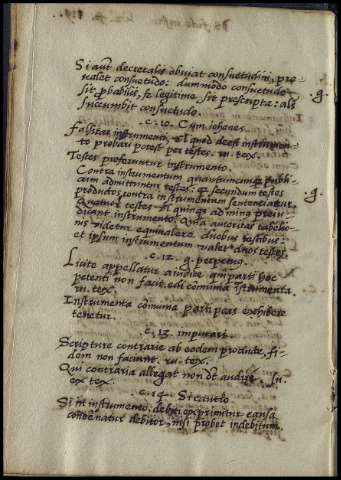 Si aut decretalis obviat consuetudini, pre
valet consuetudo: dummodo consuetudo
sit probabilis, et legitime sit prescripta: als
sucumbit consuetudo.
c. 10. Cum iohanes.
Falsitas instrumenti, vel quod deest instrumen
to probari potest per testes. in tex.
Testes preferuntur instrumento.
Contra instrumentum quantumcumque publi
cum admittuntur testes: et secundum testes
productos, contra instrumentum sententiatur.
testes vel quinque ad minus preiu
dicant instrumento. Quia autoritas tabelio
nis videtur equivalere duobus testibus:
et ipsum instrumentum valet duos testes.
c. 12. perpetuus.
Licite appellatur a iudice parti hoc
petenti non facit edi comunia istrumenta.
in tex.
Instrumenta comunia parti pars exhibere
tenetur.
c. 13. imputari.
Scripture contrarie ab eodem producte, fi
dem non faciunt. in tex.
Qui contraria allegat non dt audiri. In
tex.
c. 14. Si cautio
Si in instrumento debiti exprimitur causa
condenatur debitor, nisi probet indebitum.